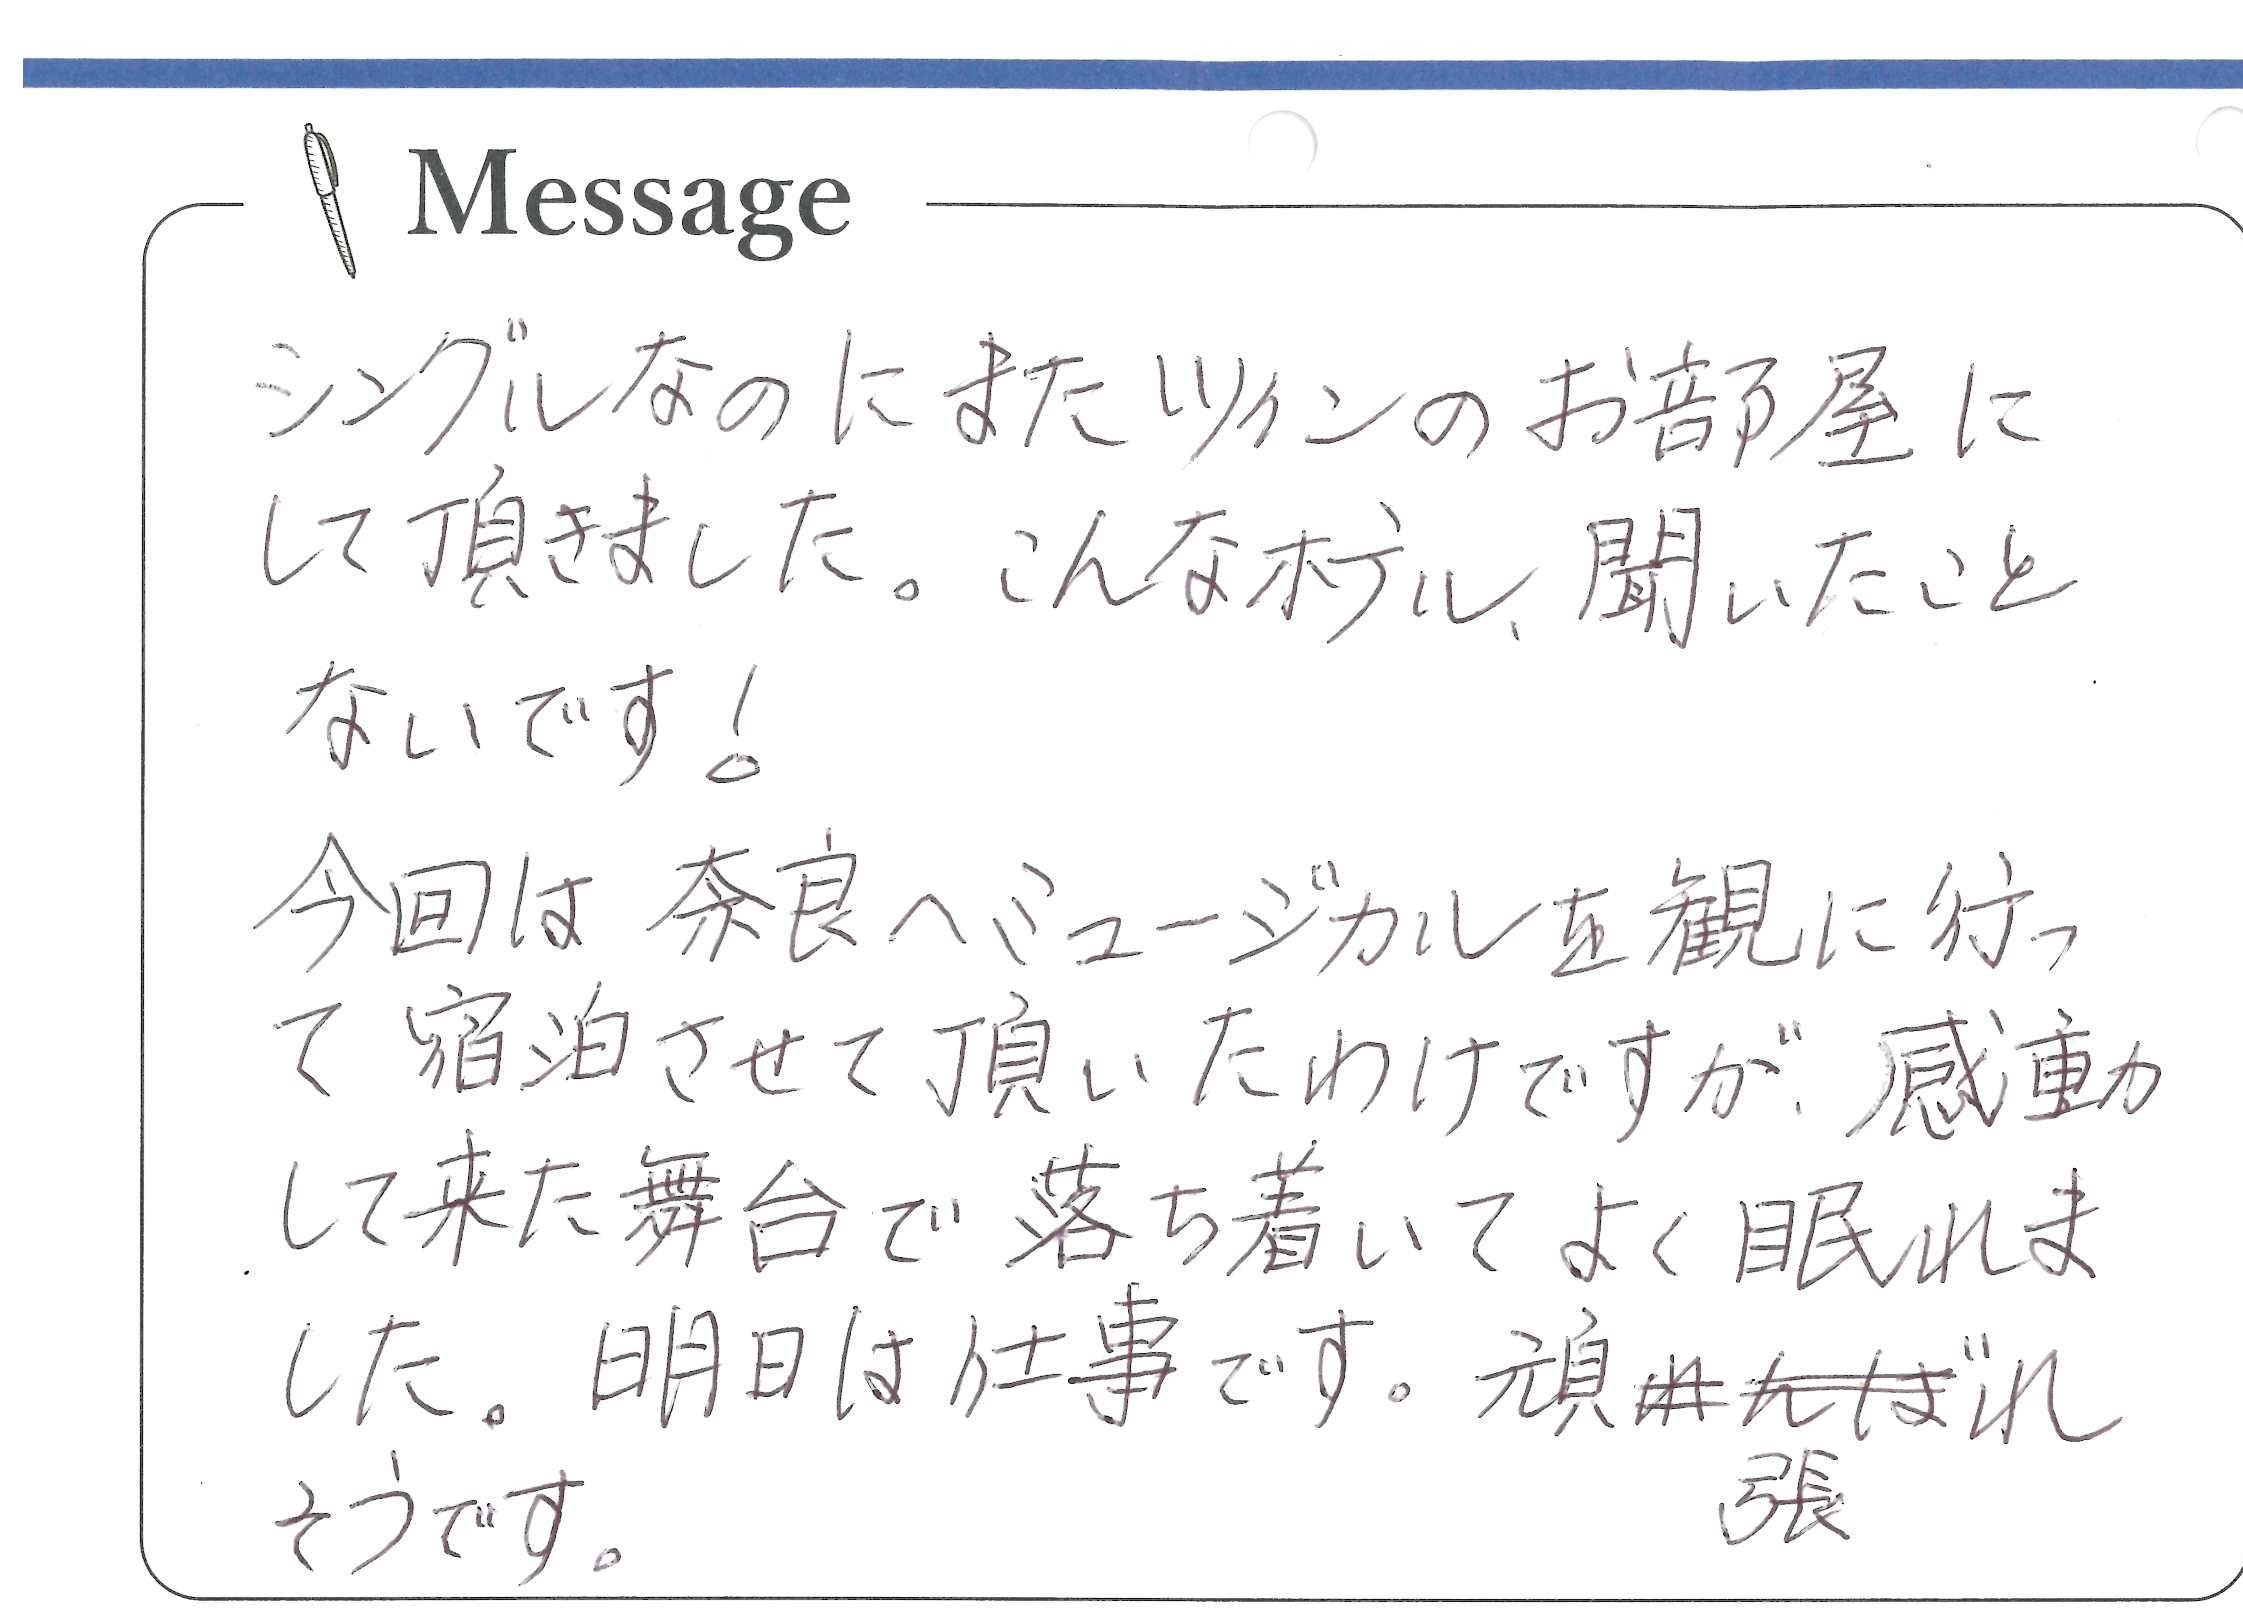 Message
シングルなのにまたツインのお部屋に
して頂きました。こんなホテル、聞いたこと
ないです!
今回は奈良へミュージカルを観に行っ
て宿泊させて頂いたわけですが、感動
して来た舞台で落ち着いてよく眠れま
した。明日は仕事です。頑張れ
そうです。